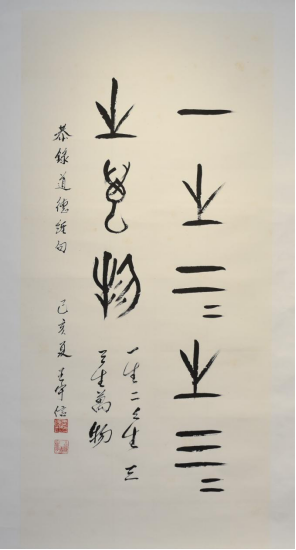 一生二〻生三〻
生萬物
一生二〻生三
三生萬物
恭錄道德經句 己亥夏 王宇信